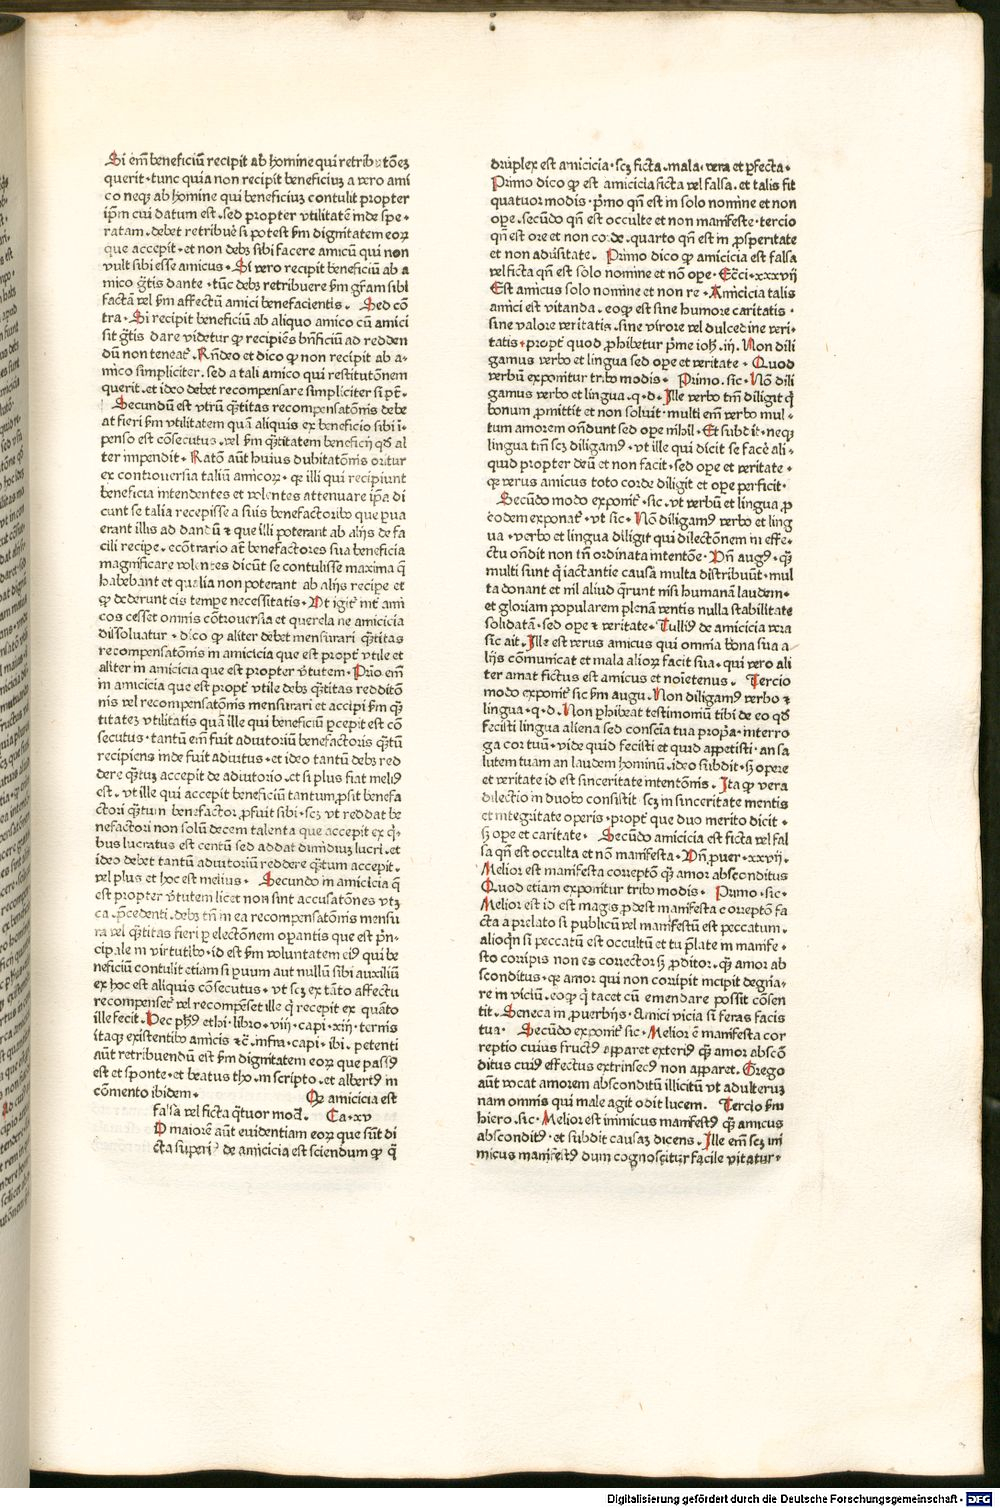 Si em̄ beneficiū recipit ab homine qui retributōeꝫ
querit · tunc quia non recipit beneficiuꝫ a vero ami
co neqꝫ ab homine qui beneficiuꝫ contulit propter
ip̄m cui datum est · sed propter vtilitatē inde spe ·
ratam · debet retribuē si potest ẜm dignitatem eoꝝ
que accepit · et non debꝫ sibi facere amicū qui non
vult sibi esse amicus · Si vero recipit beneficiū ab a
mico gr̄tis dante · tūc debꝫ retribuere ẜm gr̄am sibi
factā vel ẜm affectū amici benefacientis · Sed cō
tra · Si recipit beneficiū ab aliquo amico cū amici
sit gr̄tis dare videtur ꝙ recipiēs bn̄ficiū ad redden
dū non teneat᷑ · Rn̄deo et dico ꝙ non recipit ab a-
mico simpliciter · sed a tali amico qui restitutōnem
querit · et ideo debet recompensare simpliciter si pt̄ ·
Secundū est vtrū q̄titas recompensatōnis debe
at fieri ẜm vtilitatem quā aliquis ex beneficio sibi i̅ ·
penso est cōsecutus · vel ẜm q̄titatem beneficij qd̄ al
ter impendit · Ratō aūt huius dubitatōnis oritur
ex controuersia taliū amicoꝝ · qꝛ illi qui recipiunt
beneficia intendentes et volentes attenuare ip̄a di
cunt se talia recepisse a suis benefactoribꝰ que ꝑua
erant illis ad dandū ⁊ que illi poterant ab alijs de fa
cili recipe · ecōtrario at̄ benefactores sua beneficia
magnificare volentes dicūt se contulisse maxima q̄
habebant et qualia non poterant ab alijs recipe et
ꝙ dederunt eis tempe necessitatis · Vt igit᷑ int̄ ami
cos cesset omnis cōtrouersia et querela ne amicicia
dissoluatur · dico ꝙ aliter debet mensurari q̄titas
recompensatōnis in amicicia que est propt᷑ vtile et
aliter in amicicia que est propter v̄tutem · Prīo em̄
in amicicia que est propt᷑ vtile debꝫ q̄titas redditō
nis vel recompensatōnis mensurari et accipi ẜm q̄
titateꝫ vtilitatis quā ille qui beneficiū ꝑcepit est cō
secutus · tantū em̄ fuit adiutoriū benefactoris q̄tū
recipiens inde fuit adiutus · et ideo tantū debꝫ red
dere q̄tuꝫ accepit de adiutorio · et si plus fiat meliꝰ
est · vt ille qui accepit beneficiū tantum ꝓsit benefa
ctori q̄tum benefactor ꝓfuit sibi · scꝫ vt reddat be
nefactori non solū decem talenta que accepit ex q̄ ·
bus lucratus est centū sed addat dimidiuꝫ lucri · et
ideo debet tantū adiutoriū reddere q̄tum accepit ·
vel plus et hoc est melius · Secundo in amicicia q̄
est propter v̄tutem licet non sint accusatōnes vtꝫ
ca p̄cedenti · debꝫ tn̄ in ea recompensatōnis mensu
ra vel q̄titas fieri ꝑ electōnem oꝑantis que est pn̄ ·
cipale in virtutibꝰ · id est ẜm voluntatem eiꝰ qui be
neficiū contulit etiam si ꝑuum aut nullū sibi auxiliū
ex hoc est aliquis cōsecutus · vt scꝫ ex tāto affectu
recompenset᷑ vel recompēset ille q̄ recepit ex quāto
ille fecit · Hec phūs ethi · libro · viij · capi · xij · ternis
itaqꝫ existentibꝰ amicis ⁊c̄ · infra · capi · ibi · petenti
aūt retribuendū est ẜm dignitatem eoꝝ que passꝰ
est et sponte · et beatus tho · in scripto · et albertꝰ in
cōmento ibidem · Qꝛ amicicia est
falsa vel ficta q̄tuor mod̄ · Ca · xv
D maiorē aūt euidentiam eoꝝ que sūt di
cta superiꝰ de amicicia est sciendum ꝙ q̄
druplex est amicicia · scꝫ ficta · mala · vera et ꝑfecta ·
Primo dico ꝙ est amicicia ficta vel falsa · et talis fit
quatuor modis · p̄mo qn̄ est in solo nomine et non
oꝑe · secūdo qn̄ est occulte et non manifeste · tercio
qn̄ est ore et non corde · quarto qn̄ est in ꝓsperitate
et non aduersitate · Primo dico ꝙ amicicia est falsa
vel ficta qn̄ est solo nomine et nō oꝑe · Ecci · xxxvij
Est amicus solo nomine et non re · Amicicia talis
amici est vitanda · eoꝙ est sine humore caritatis ·
sine valore veritatis · sine virore vel dulcedine veri ·
tatis · propt᷑ quod ꝓhibetur prime ioh̄ · iij · Non dili
gamus verbo et lingua sed oꝑe et veritate · Quod
verbū exponitur tribꝰ modis · Primo · sic · Nō dili
gamus verbo et lingua · q · d · Ille verbo tm̄ diligit q̄
bonum ꝓmittit et non soluit · multi em̄ verbo mul ·
tum amorem on̄dunt sed oꝑe nihil · Et subdit · neqꝫ
lingua tm̄ scꝫ diligamꝰ · vt ille qui dicit se facē ali ·
quid propter deū et non facit · sed oꝑe et veritate ·
qꝛ verus amicus toto corde diligit et oꝑe ꝑficit ·
Secūdo modo exponit᷑ · sic · vt verbū et lingua ꝓ
eodem exponat᷑ · vt sic · Nō diligamꝰ verbo et ling
ua · verbo et lingua diligit qui dilectōnem in effe ·
ctu on̄dit non tn̄ ordinata intentōe · Vn̄ augꝰ · q̄
multi sunt q̄ iactantie causa multa distribuūt · mul
ta donant et nil aliud q̄runt nisi humanā laudem ·
et gloriam popularem plenā ventis nulla stabilitate
solidatā · sed oꝑe ⁊ veritate · Tulliꝰ de amicicia vera
sic ait · Ille est verus amicus qui omnia bona sua a
lijs cōmunicat et mala alioꝝ facit sua · qui vero ali
ter amat fictus est amicus et noīetenus · Tercio
modo exponit᷑ sic ẜm augu · Non diligamꝰ verbo ⁊
lingua · q · d · Non ꝓhibeat testimoniū tibi de eo qd̄
fecisti lingua aliena sed conscīa tua propa · interro
ga cor tuū · vide quid fecisti et quid appetisti · an sa
lutem tuam an laudem hominū · ideo subdit · sꝫ opere
et veritate id est sinceritate intentōnis · Ita ꝙ vera
dilectio in duobꝰ consistit scꝫ in sinceritate mentis
et integritate operis · propt᷑ que duo merito dicit ·
sꝫ oꝑe et caritate · Secūdo amicicia est ficta vel fal
sa qn̄ est occulta et nō manifesta · Vn̄ ꝓuer · xxvij ·
Melior est manifesta correptō q̄ amor absconditus
Quod etiam exponitur tribꝰ modis · Primo · sic ·
Melior est id est magis ꝓdest manifesta correptō fa
cta a prelato si publicū vel manifestū est peccatum ·
alioqn̄ si peccatū est occultū et tu p̄late in manife ·
sto corripis non es corrector sꝫ ꝓditor · q̄ amor ab
sconditus · qꝛ amor qui non corripit incipit degn̄a ·
re in viciū · eoꝙ q̄ tacet cū emendare possit cōsen
tit · Seneca in ꝓuerbijs · Amici vicia si feras facis
tua · Secūdo exponit᷑ sic · Melior ē manifesta cor
reptio cuius fructꝰ apparet exteriꝰ q̄ amor abscō
ditus cuiꝰ effectus extrinsecꝰ non apparet · Grego
aūt vocat amorem absconditū illicitū vt adulteruꝫ
nam omnis qui male agit odit lucem · Tercio ẜm
hiero · sic · Melior est inimicus manifestꝰ q̄ amicus
absconditꝰ · et subdit causaꝫ dicens · Ille em̄ scꝫ ini
micus manifestꝰ dum cognoscitur facile vitatur ·
Digitalisierung gefördert durch die Deutsche Forschungsgemeinschaft - DFG